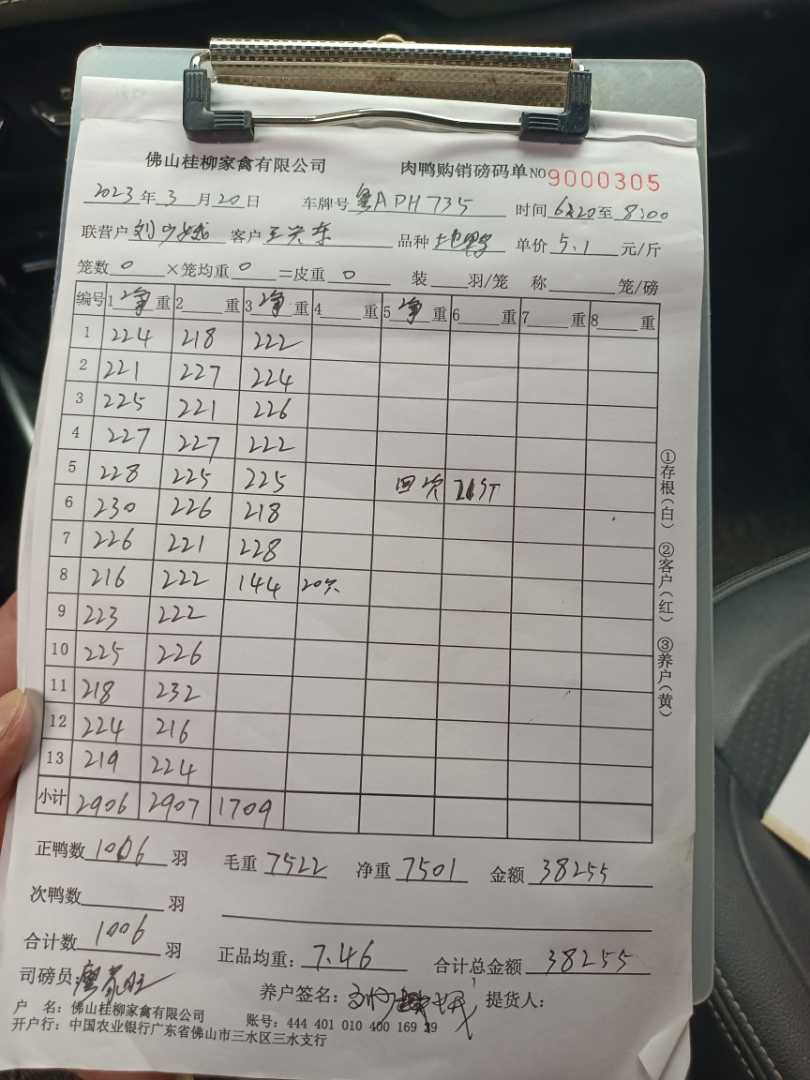 佛山桂柳家禽有限公司 肉鸭购销磅码单 NO 9000305
2023年3月20日 车牌号 粤APH735 时间 6:20至8:00
联营户 刘 客户 王兴东 品种 单价 5.1 元/斤
笼数 0 ×笼均重 0 =皮重 0 装 羽/笼 称 笼/磅
编号 1 净 重 2 重 3 净 重 4 重 5 净 重 6 重 7 重 8 重
1 224 218 222
2 221 227 224
3 225 221 226
4 227 227 222
5 228 225 225 回 21斤
6 230 226 218
7 226 221 228
8 216 222 144 20只
9 223 222
10 225 226
11 218 232
12 224 216
13 219 224
小计 2906 2907 1709
正鸭数 1006 羽 毛重 7522 净重 7501 金额 38255
次鸭数 羽
合计数 1006 羽 正品均重: 7.46 合计总金额 38255
司磅员: 养户签名: 提货人:
户 名: 佛山桂柳家禽有限公司 账号: 444 401 010 400 169 29
开户行: 中国农业银行广东省佛山市三水区三水支行
①存根(白) ②客户(红) ③养户(黄)